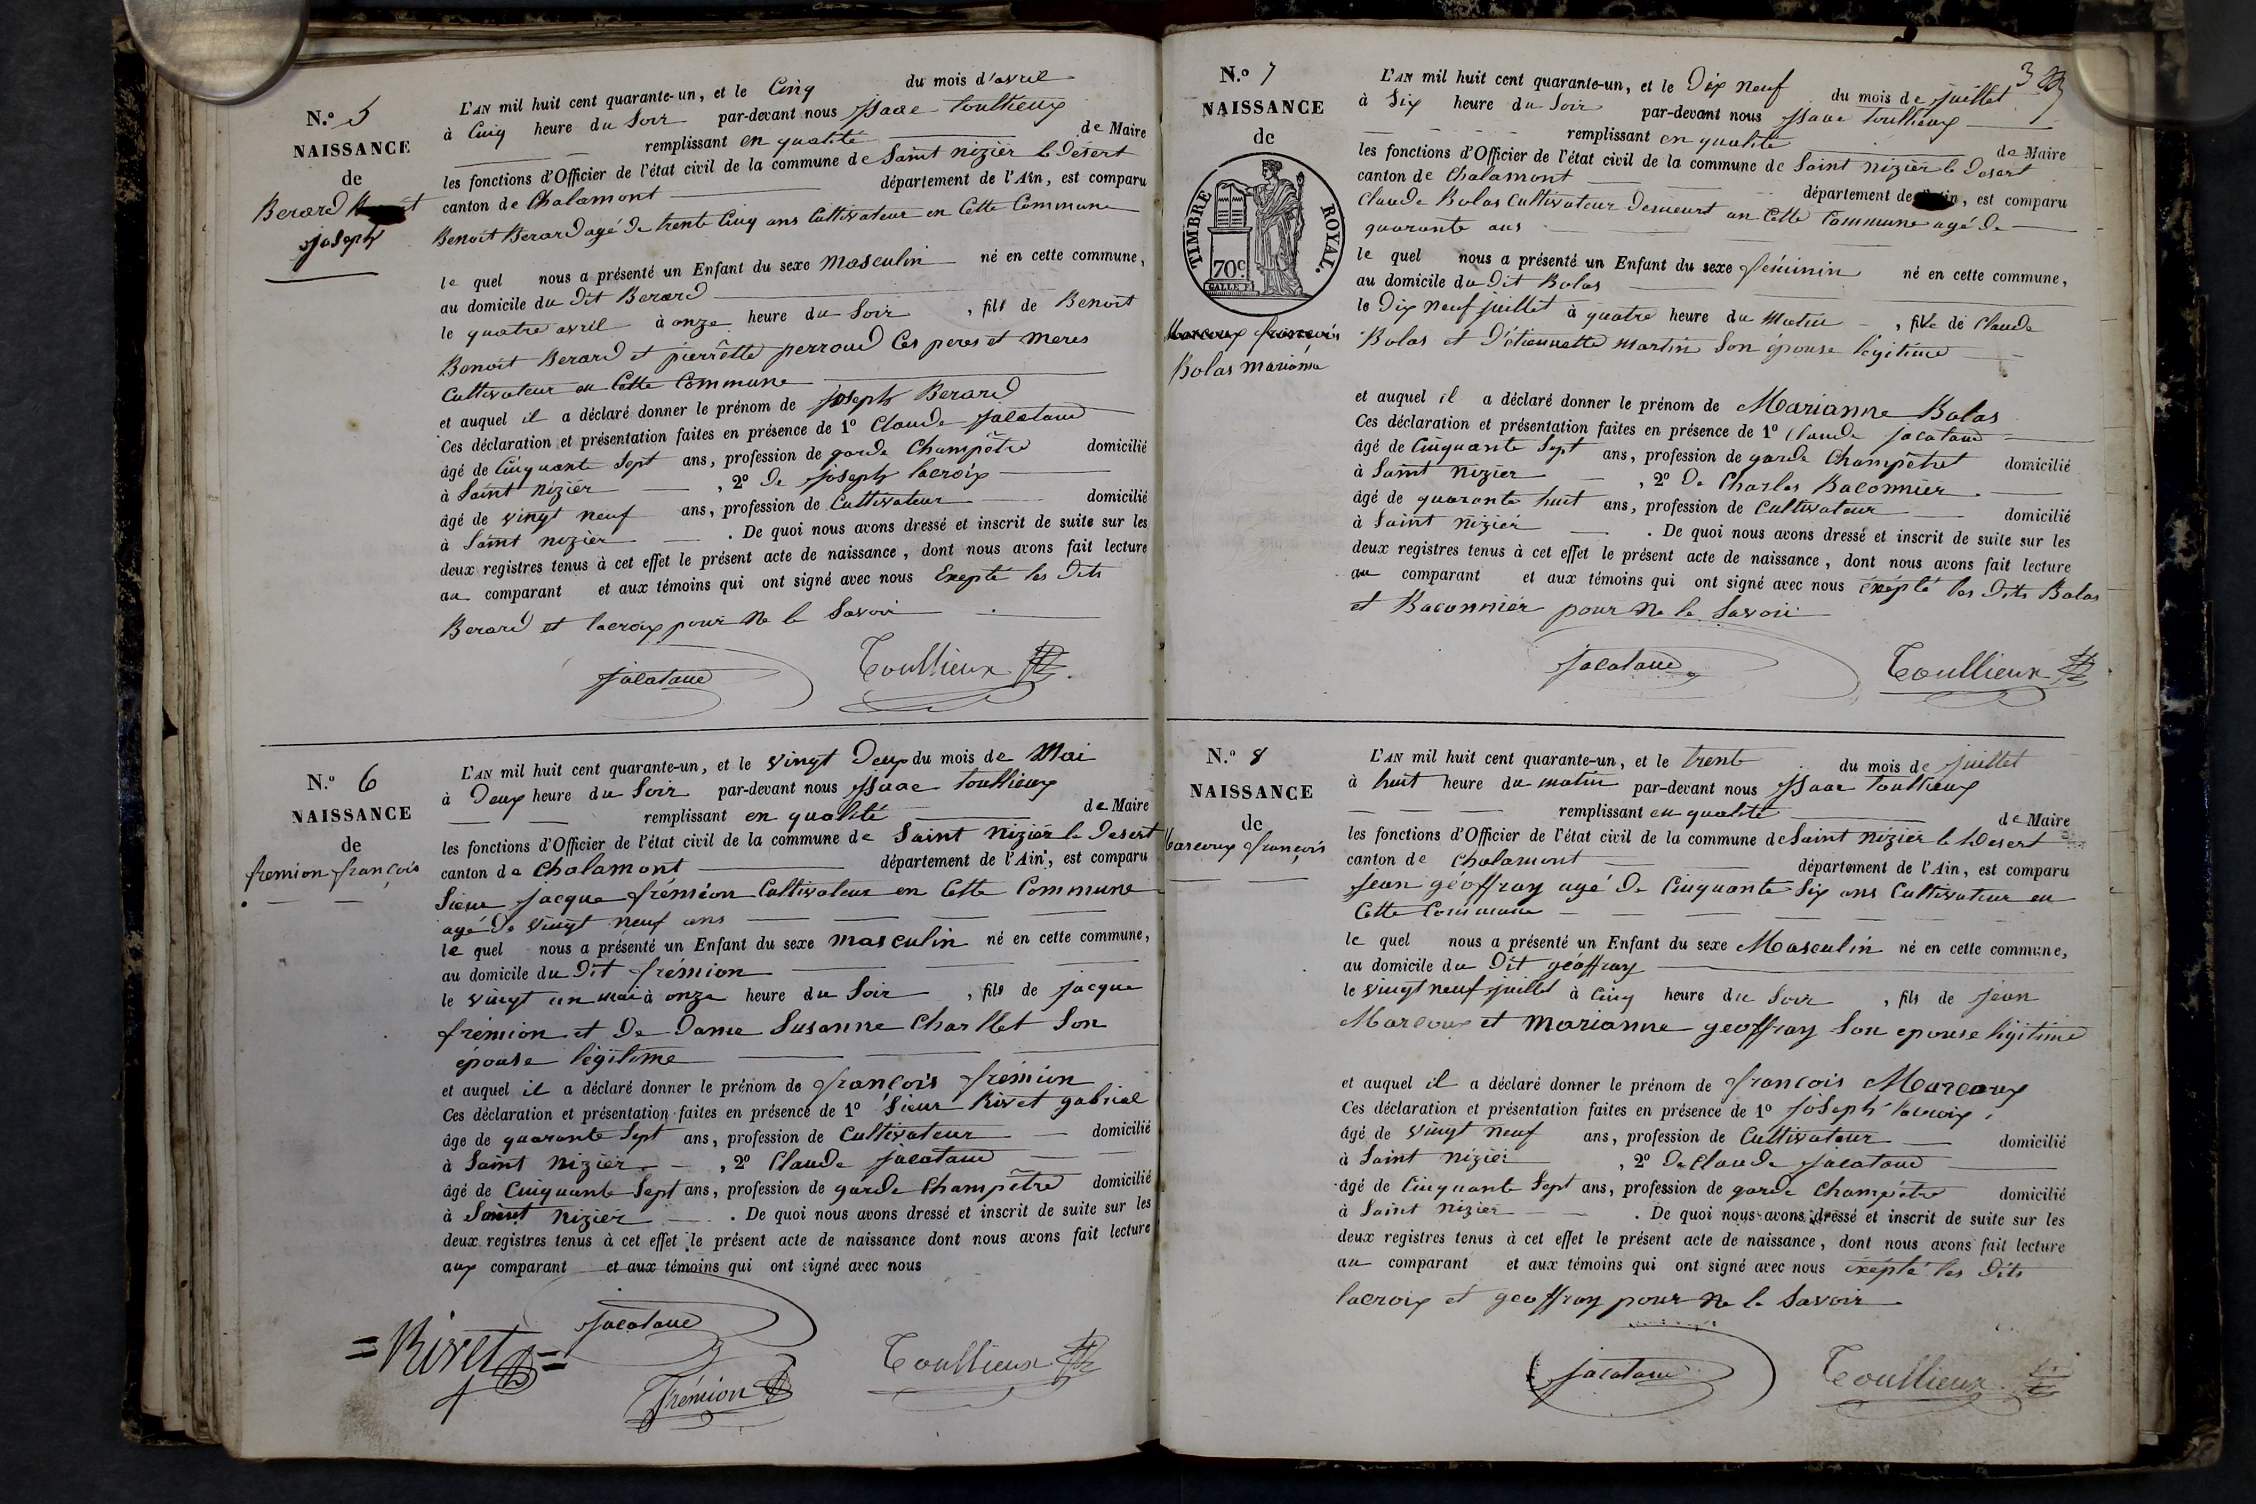 N.o 5
NAISSANCE
de
Berard
joseph
L'AN mil huit cent quarante-un, et le Cinq du mois d'avril
à Cinq heure du Soir par-devant nous jsaac toullieux
remplissant en qualité de Maire
les fonctions d'Officier de l'état civil de la commune de Saint nizier le Désert
canton de Chalamont département de l'Ain, est comparu
Benoit Berard agé de trente Cinq ans Cultivateur en Cette Commune
le quel nous a présenté un Enfant du sexe masculin né en cette commune,
au domicile du dit Berard
le quatre avril à onze heure du Soir , fils de Benoit
Benoit Berard et pierrette perroud Ces peres et meres
Cultivateur en Cette Commune
et auquel il a déclaré donner le prénom de joseph Berard
Ces déclaration et présentation faites en présence de 1o Claude jacataud
âgé de Cinquante Sept ans, profession de garde Champêtre domicilié
à Saint nizier , 2o de joseph lacroix
âgé de vingt neuf ans, profession de Cultivateur domicilié
à Saint nizier . De quoi nous avons dressé et inscrit de suite sur les
deux registres tenus à cet effet le présent acte de naissance, dont nous avons fait lecture
au comparant et aux témoins qui ont signé avec nous Exepté les dits
Berard et lacroix pour ne le Savoir
jacataud Toullieux
N.o 6
NAISSANCE
de
fremion françois
L'AN mil huit cent quarante-un, et le vingt deux du mois de Mai
à Deux heure du Soir par-devant nous jsaac toullieux
remplissant en qualité de Maire
les fonctions d'Officier de l'état civil de la commune de Saint nizier le Desert
canton de Chalamont département de l'Ain, est comparu
Sieur jacque frémion Cultivateur en Cette Commune
agé de vingt neuf ans
le quel nous a présenté un Enfant du sexe masculin né en cette commune,
au domicile du dit frémion
le vingt un mai à onze heure du Soir , fils de jacque
frémion et de Dame Susanne Charllet Son
épouse légitime
et auquel il a déclaré donner le prénom de françois frémion
Ces déclaration et présentation faites en présence de 1o Sieur Rivet gabriel
âge de quarante Sept ans, profession de Cultivateur domicilié
à Saint nizier , 2o Claude jacataud
âgé de Cinquante Sept ans, profession de garde Champêtre domicilié
à Saint nizier . De quoi nous avons dressé et inscrit de suite sur les
deux registres tenus à cet effet le présent acte de naissance dont nous avons fait lecture
aux comparant et aux témoins qui ont signé avec nous
Rivet jacataud Toullieux
frémion
3
N.o 7
NAISSANCE
de
TIMBRE ROYAL.
70c
Marcoux francois
Bolas marianne
L'AN mil huit cent quarante-un, et le Dix neuf du mois de juillet
à Six heure du Soir par-devant nous jsaac toullieux
remplissant en qualité de Maire
les fonctions d'Officier de l'état civil de la commune de Saint nizier le Desert
canton de Chalamont département de , est comparu
Claude Bolas Cultivateur demeurt en Cette Commune agé de
quarante ans
le quel nous a présenté un Enfant du sexe féminin né en cette commune,
au domicile du dit Bolas
le Dix neuf juillet à quatre heure du Matin , fille de Claude
Bolas et d'étiennette martin Son épouse légitime
et auquel il a déclaré donner le prénom de Marianne Bolas
Ces déclaration et présentation faites en présence de 1o Claude jacataud
âgé de Cinquante Sept ans, profession de garde Champêtre domicilié
à Saint nizier , 2o de Charles Baconnier
âgé de quarante huit ans, profession de Cultivateur domicilié
à Saint nizier . De quoi nous avons dressé et inscrit de suite sur les
deux registres tenus à cet effet le présent acte de naissance, dont nous avons fait lecture
au comparant et aux témoins qui ont signé avec nous éxépté les dits Bolas
et Baconnier pour ne le Savoir
jacataud Toullieux
N.o 8
NAISSANCE
de
Marcoux françois
L'AN mil huit cent quarante-un, et le trente du mois de juillet
à huit heure du matin par-devant nous jsaac toullieux
remplissant en qualité de Maire
les fonctions d'Officier de l'état civil de la commune de Saint nizier le Desert
canton de Chalamont département de l'Ain, est comparu
jean géoffray agé de Cinquante Six ans Cultivateur en
Cette Commune
le quel nous a présenté un Enfant du sexe Masculin né en cette commune,
au domicile du dit géoffray
le vingt neuf juillet à Cinq heure du Soir , fils de jean
Marcoux et marianne geoffray Son epouse légitime
et auquel il a déclaré donner le prénom de francois Marcoux
Ces déclaration et présentation faites en présence de 1o joseph lacroix
âgé de vingt neuf ans, profession de Cultivateur domicilié
à Saint nizier , 2o de Claude jacataud
âgé de Cinquante Sept ans, profession de garde Champêtre domicilié
à Saint nizier . De quoi nous avons dressé et inscrit de suite sur les
deux registres tenus à cet effet le présent acte de naissance, dont nous avons fait lecture
au comparant et aux témoins qui ont signé avec nous éxépté les dits
lacroix et geoffray pour ne le Savoir
jacataud Toullieux